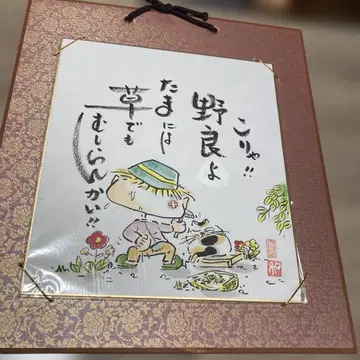 こりゃ!!
野良よ
たまには
草でも
むしらんかい!!